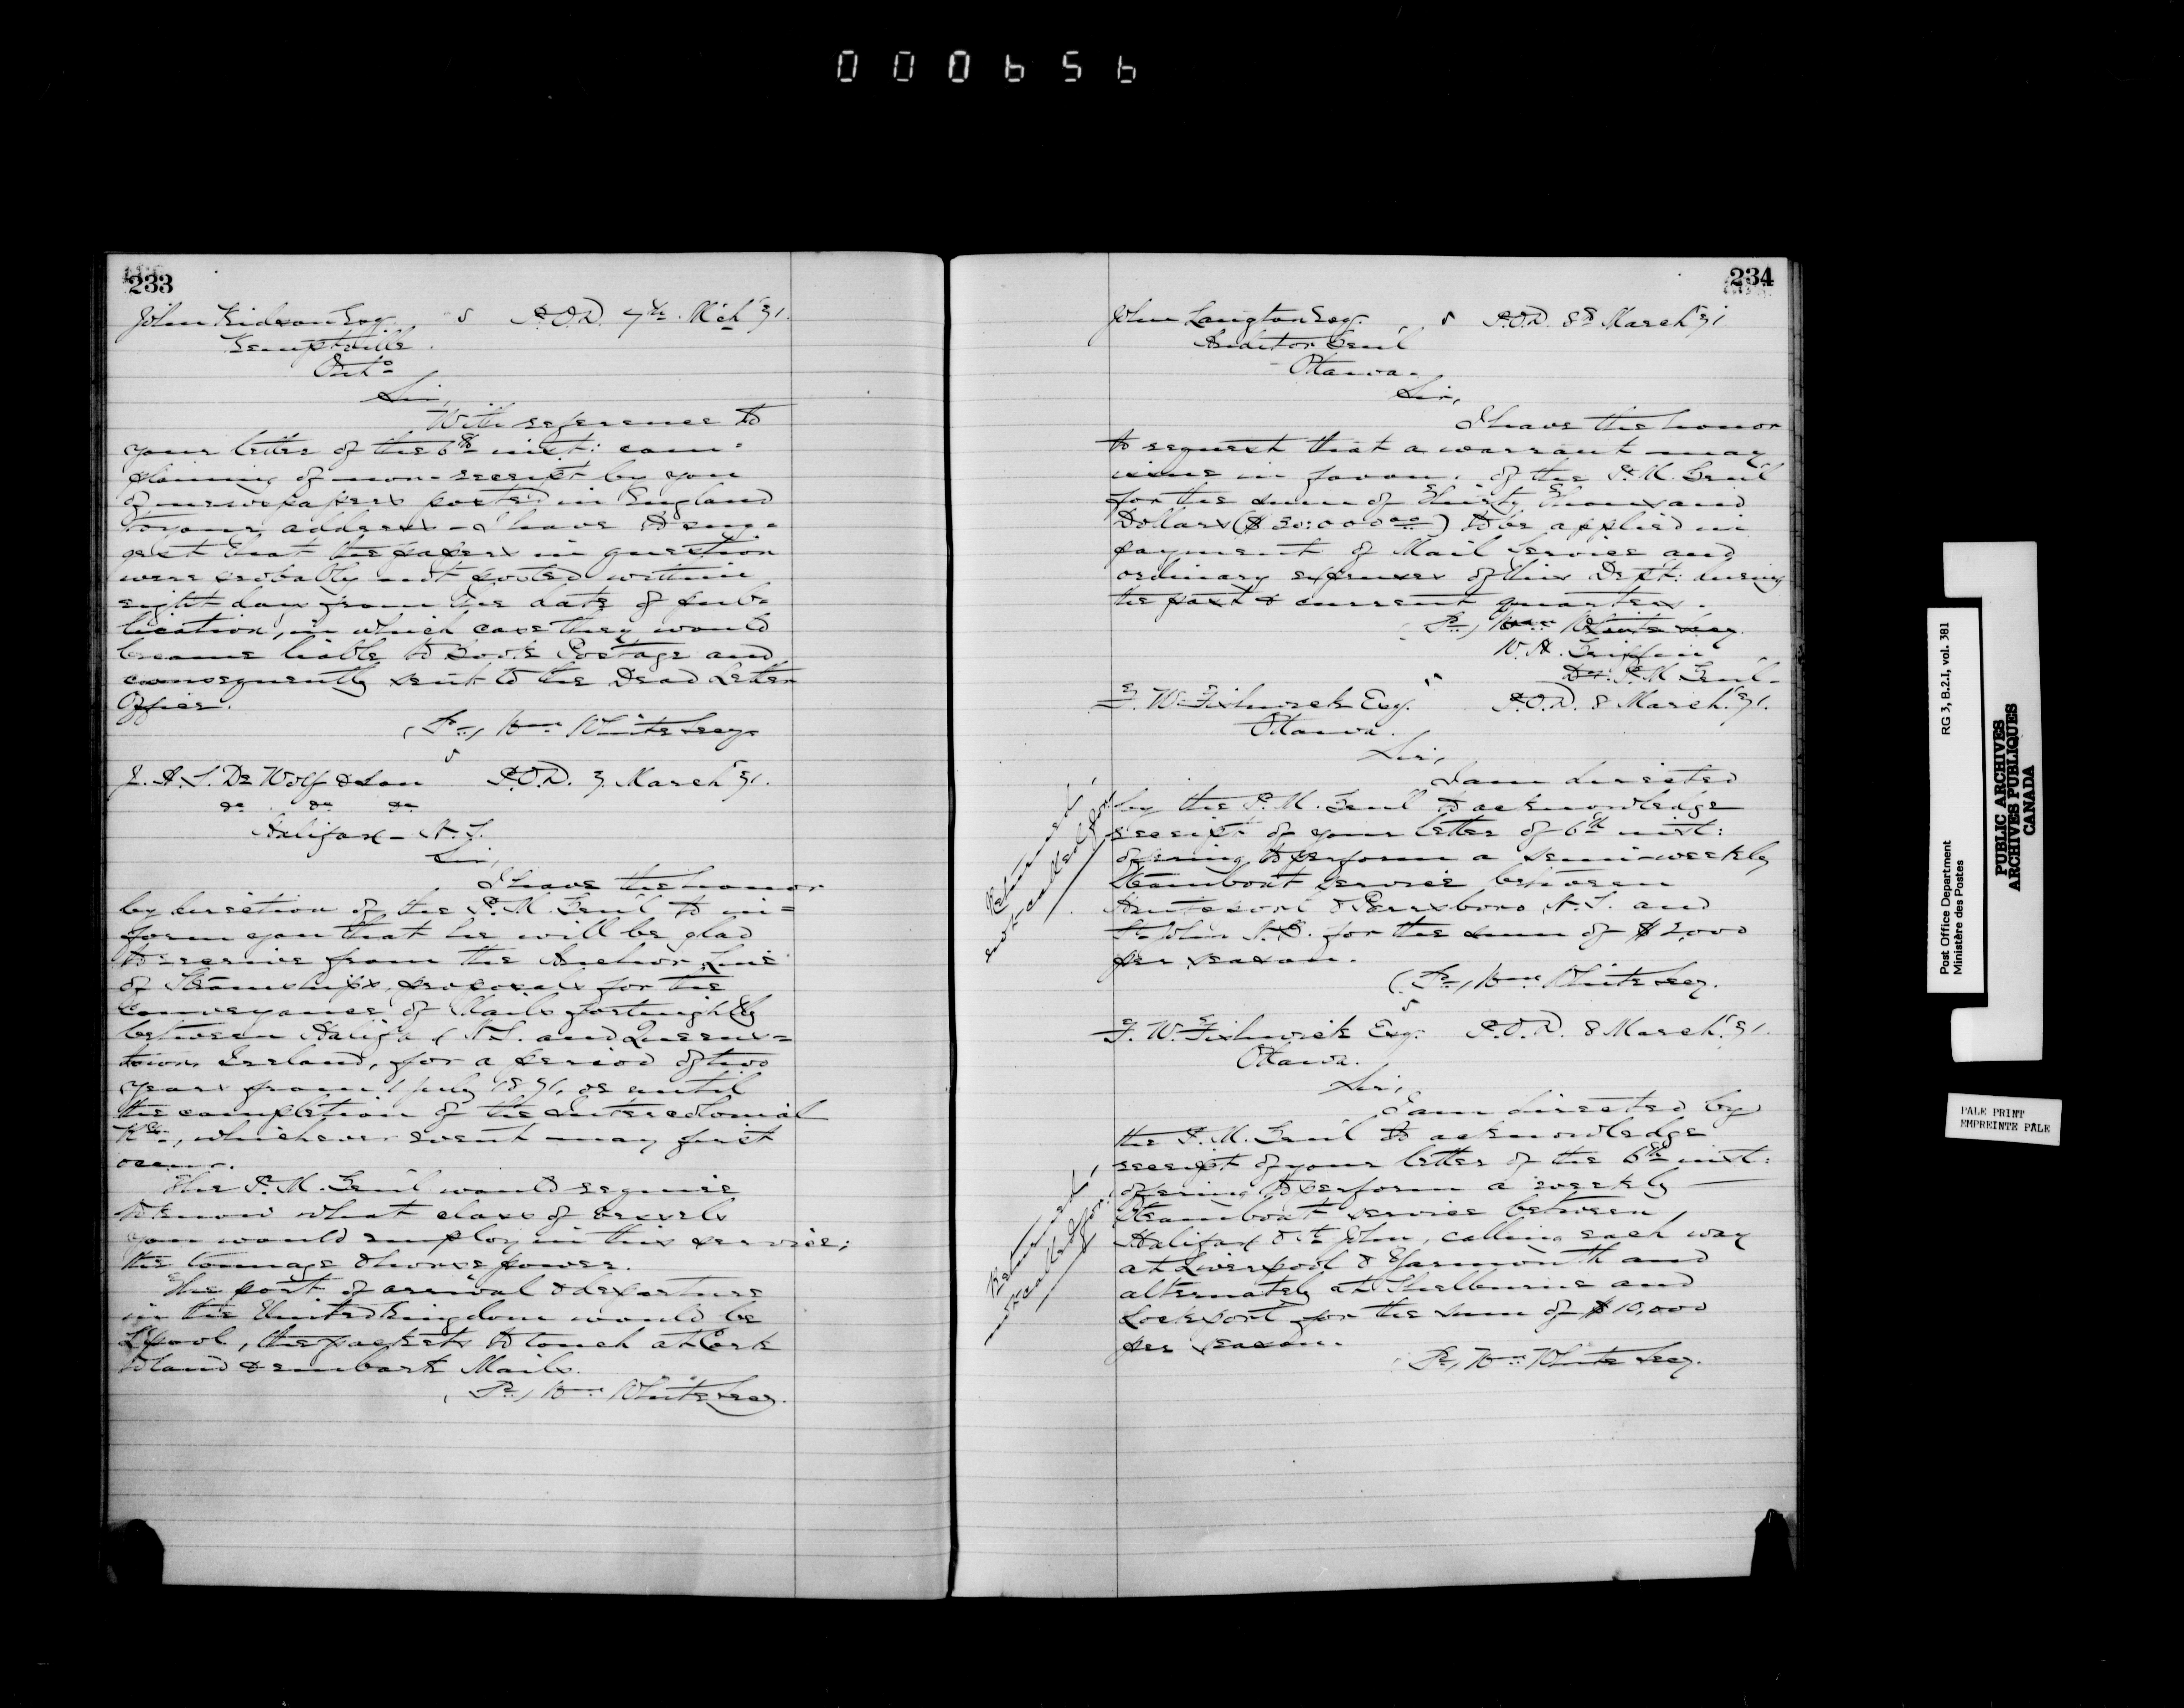 000656
233
John Kidson Esq P.O.D. 7th Mch '71.
Kemptville
Onto
Sir,
With reference to
your letter of the 6th inst: com=
plaining of non-receipt by you
of newspapers posted in England
to your address - I have to sug=
gest that the papers in question
were probably not posted within
eight days from the date of pub=
lication, in which case they would
become liable to Book Postage and
consequently sent to the Dead Letter
Office.
Wm White Secy.
J. A. S. De Wolf & Son P.O.D. 7 March '71.
Do Do Do
Halifax - N.S.
Sir,
I have the honor
by direction of the P.M. Genl to in=
form you that he will be glad
to receive from the Anchor Line
of Steamships, proposals for the
Conveyance of Mails fortnightly
between Halifax N.S. and Queens=
town Ireland, for a period of two
years from 1 July 1871, or until
the completion of the Intercolonial
Rly., whichever event may first
occur.
The P.M. Genl would require
to know what class of vessels
you would employ in this service;
the tonnage & horse power.
The port of arrival & departure
in the United Kingdom would be
L'pool, the packets to touch at Cork
to land & embark Mails.
Wm White Secy.
234
John Langton Esq. P.O.D. 8th March '71
Auditor Genl
Ottawa.
Sir,
I have the honor
to request that a warrant may
issue in favour of the P.M. Genl
for the sum of Thirty Thousand
Dollars ($30:000 00) to be applied in
payment of Mail Service and
ordinary expenses of this Dept: during
the past & current quarters.
Wm White Secy.
W. H. Griffin
Dy. P.M. Genl.
F. W. Fishwick Esq. P.O.D. 8 March '71.
Ottawa.
Sir,
I am directed
by the P.M. Genl to acknowledge
receipt of your letter of 6th inst:
offering to perform a semi-weekly
Steamboat service between
& Parrsboro N.S. and
St. John N.B. for the sum of $2,000
per season.
Wm White Secy.
Returned,
not called for
F. W. Fishwick Esq. P.O.D. 8 March '71.
Ottawa.
Sir,
I am directed by
the P.M. Genl to acknowledge
receipt of your letter of the 6th inst:
offering to perform a weekly
Steamboat service between
Halifax & St John, calling each way
at Liverpool & Yarmouth and
alternately at Shelburne and
Lockeport for the sum of $10,000
per season.
Wm White Secy.
Returned,
not called for.
Post Office Department RG 3, B.2.I, vol. 381
Ministère des Postes
PUBLIC ARCHIVES
ARCHIVES PUBLIQUES
CANADA
PALE PRINT
EMPREINTE PÂLE